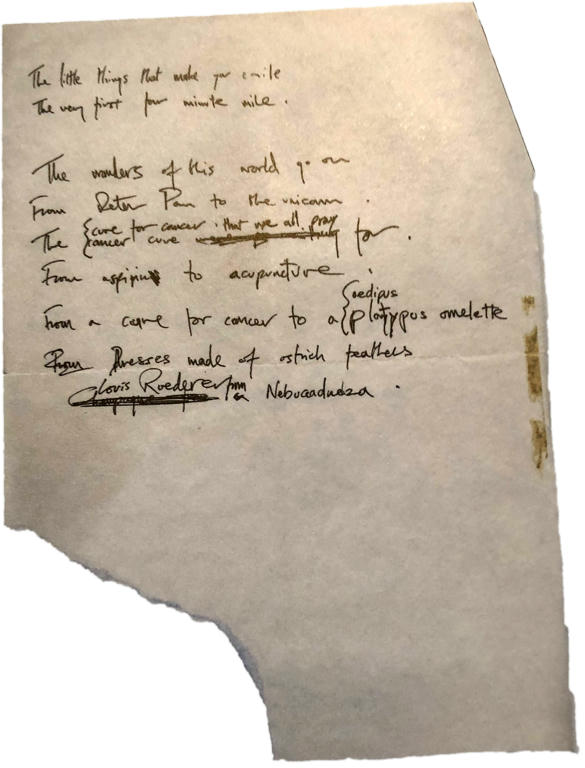 The little things that make you smile
The very first four minute mile.
The wonders of this world go on
From Peter Pan to the unicorn.
The {cure for cancer that we all pray
{cancer cure for.
From aspirin to acupuncture.
{oedipus
From a cure for cancer to a {platypus omelette
From Dresses made of ostrich feathers
Louis Roederer from a Nebucadneza.